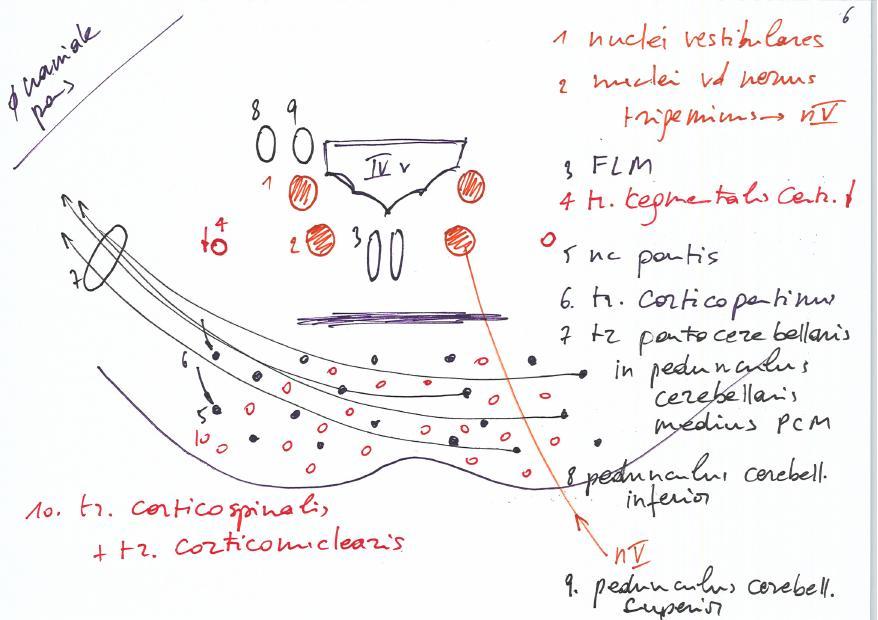 6
craniale
pons
8 9
IV v
1
4
2
3
7
6
5
10
1 nuclei vestibulares
2 nuclei vd nervus
trigeminus → nV
3 FLM
4 tr. tegmentalis centr.
5 nc pontis
6. tr. corticopontinus
7 tr pontocerebellaris
in pedunculus
cerebellaris
medius PCM
8 pedunculus cerebell.
inferior
nV
9. pedunculus cerebell.
superior
10. tr. corticospinalis,
+ tr. corticonuclearis